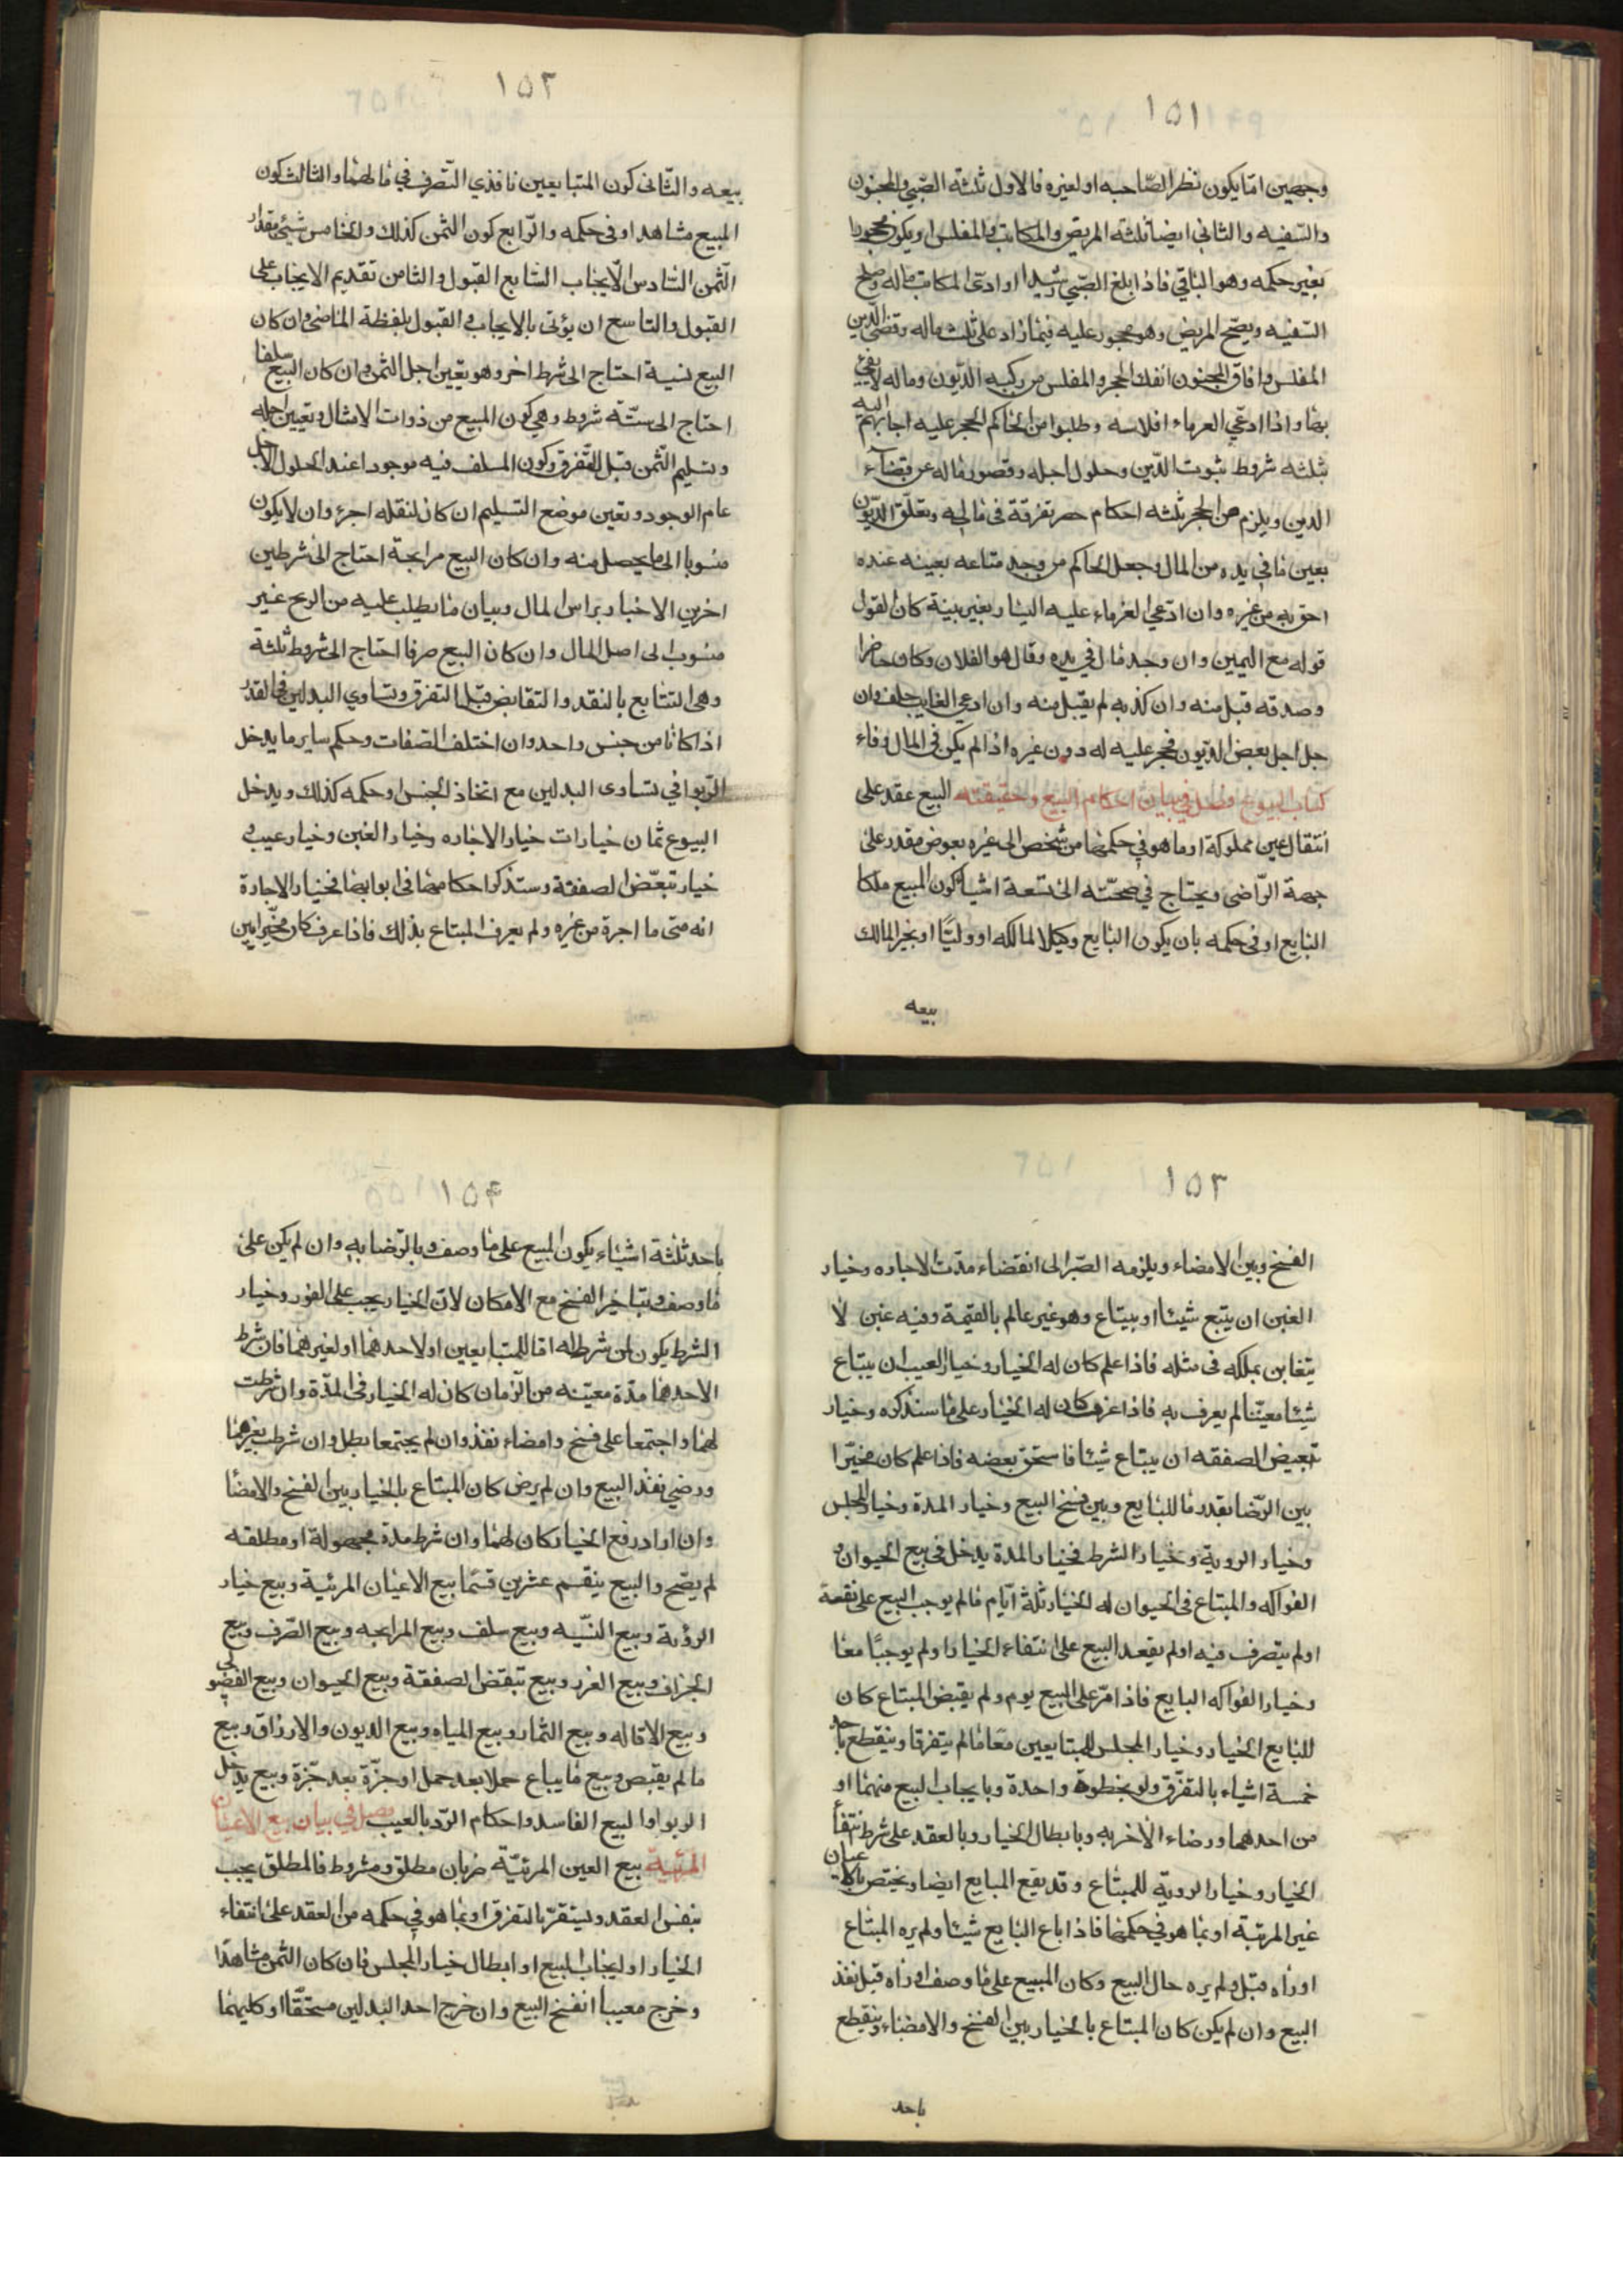 ١٥١
وجهين اما يكون نظرا لصاحبه او لغيره فالاول ثلثة الصبي والمجنون
والسفيه والثاني ايضا ثلثة المريض والمكاتب والمفلس او يكون محجورا
بغير حكمه وهو الباقي فاذا بلغ الصبي رشيدا او ادى المكاتب ماله وصلح
السفيه ويصح المريض وهو محجور عليه فيما زاد على ثلث ماله وقضى الدين
المفلس وافاق المجنون انفك الحجر والمفلس من ركبه الديون وماله لا يفي
بها واذا ادعي الغرماء افلاسه وطلبوا من الحاكم الحجر عليه اجابهم اليه
بثلثه شروط ثبوت الدين وحلول اجله وقصور ماله عن قضاء
الدين ويلزم من الحجر ثلثه احكام حصر تفرقة في ماله وتعلق الديون
بعين ما في يده من المال وجعل الحاكم من وجد متاعه بعينه عنده
احق به من غيره وان ادعي الغرماء عليه اليسار بغير بينة كان القول
قوله مع اليمين وان وجد مال في يده وقال هو لفلان وكان حاضرا
وصدقه قبل منه وان كذبه لم يقبل منه وان ادعي الغايب حلف وان
حل اجل بعض الديون فحجر عليه له دون غيره اذا لم يكن في المال وفاء
كتاب البيوع فصل في بيان احكام البيع وحقيقته البيع عقد على
انتقال عين مملوكة او ما هو في حكمها من شخص الى غيره بعوض مقدر على
جهة التراضي ويحتاج في صحته الى تسعة اشيا كون المبيع ملكا
البايع او في حكمه بان يكون البايع وكيلا لمالكه او وليا او يجيز المالك
بيعه
١٥٢
بيعه والثاني كون المتبايعين نافذي التصرف في مالهما والثالث كون
المبيع مشاهدا او في حكمه والرابع كون الثمن كذلك والخامس شيئ مقدار
الثمن السادس الايجاب السابع القبول والثامن تقديم الايجاب على
القبول والتاسع ان يؤتى بالايجاب والقبول بلفظة الماضي وان كان
البيع نسية احتاج الى شرط اخر وهو تعيين اجل الثمن وان كان البيع سلفا
احتاج الى ستة شروط وهي كون المبيع من ذوات الامثال وتعيين اجله
وتسليم الثمن قبل التفرق وكون المسلف فيه موجودا عند الحلول الاجل
عام الوجود وتعين موضع التسليم ان كان لنقله اجرة وان لا يكون
منسوبا الى ما يحصل منه وان كان البيع مرابحة احتاج الى شرطين
اخرين الاخبار براس المال وبيان ما يطلب عليه من الربح غير
منسوب الى اصل المال وان كان البيع صرفا احتاج الى شروط ثلثة
وهي التتابع بالنقد والتقابض قبل التفرق وتساوي البدلين في القدر
اذا كانا من جنس واحد وان اختلف الصفات وحكم ساير ما يدخل
الربوا في تساوى البدلين مع اتخاذ الجنس او حكمه كذلك ويدخل
البيوع ثمان خيارات خيار الاجاره وخيار الغبن وخيار عيب و
خيار تبعض الصفقة وستذكر احكامها في ابوابها فخيار الاجارة
انه متى ما اجرة من غيره ولم يعرف المبتاع بذلك فاذا عرف كان مخيرا بين
١٥٣
الفسخ وبين الامضاء ويلزمه الصبر الى انقضاء مدت الاجاره وخيار
الغبن ان يتبع شيئا او يبتاع وهو غير عالم بالقيمة وفيه غبن لا
يتغابن بملكه في مثله فاذا علم كان له الخيار وخيار العيب ان يبتاع
شيئا معيبا لم يعرف به فاذا عرف كان له الخيار على ما سنذكره وخيار
تبعيض الصفقه ان يبتاع شيئا فاستحق بعضه فاذا علم كان مخيرا
بين الرضا بقدر ما للبايع وبين فسخ البيع وخيار المدة وخيار المجلس
وخيار الروية وخيار الشرط فخيار المدة يدخل في بيع الحيوان و
الفواكه والمبتاع في الحيوان له الخيار ثلثة ايام ما لم يوجب البيع على نفسه
او لم يتصرف فيه او لم يعقد البيع على انتفاء الخيار او لم يوجبا معا
وخيار الفواكه البايع فاذا مر على البيع يوم ولم يقبض المبتاع كان
للبايع الخيار وخيار المجلس للمبتايعين معا ما لم يتفرقا وينقطع باحد
خمسة اشياء بالتفرق ولو بخطوة واحدة وبايجاب البيع منهما او
من احدهما ورضاء الاخر به وبابطال الخيار وبالعقد على شرط انتفاء
الخيار وخيار الروية للمبتاع وقد يقع المبايع ايضا ويختص بالاعيان
غير المرتبة او بما هو في حكمها فاذا باع البايع شيئا ولم يره المبتاع
او راه قبل ولم يره حال البيع وكان المبيع على ما وصف او راه قبل نفذ
البيع وان لم يكن كان المبتاع بالخيار بين الفسخ والامضاء وينقطع
باحد
١٥٤
باحد ثلثة اشياء يكون المبيع على ما وصف وبالرضا به وان لم يكن على
ما وصف وبتاخير الفسخ مع الامكان لان الخيار يجب على الفور وخيار
الشرط يكون لمن شرط له اما للمتبايعين او لاحدهما او لغيرهما فان شرط
لاحدهما مدة معينه من الزمان كان له الخيار في المدة وان شرطت
لهما واجتمعا على فسخ وامضاء نفذ وان لم يجتمعا بطل وان شرط بغيرهما
ورضي نفذ البيع وان لم يرض كان المبتاع بالخيار بين الفسخ والامضا
وان اراد رفع الخيار كان لهما وان شرط مدة مجهولة او مطلقه
لم يصح والبيع ينقسم عشرين قسما بيع الاعيان المرئية وبيع خيار
الرؤية وبيع النسيه وبيع سلف وبيع المرابحه وبيع الصرف وبيع
الجزاف وبيع الغرر وبيع تبعض الصفقة وبيع الحيوان وبيع الفضولي
وبيع الاقاله وبيع الثمار وبيع المياه وبيع الديون والارزاق وبيع
ما لم يقبص وبيع ما يباع حملا بعد حمل او جزة بعد جزة وبيع يدخل
الربوا والبيع الفاسد واحكام الرد بالعيب فصل في بيان بيع الاعيان
المرئية بيع العين المرتبة ضربان مطلق ومشروط فالمطلق يجب
بنفس العقد وليتقر بالتفرق او بما هو في حكمه من العقد على انتفاء
الخيار او ايجاب البيع او ابطال خيار المجلس فان كان الثمن مشاهدا
وخرج معيبا انفسخ البيع وان خرج احد البدلين مستحقا او كليهما